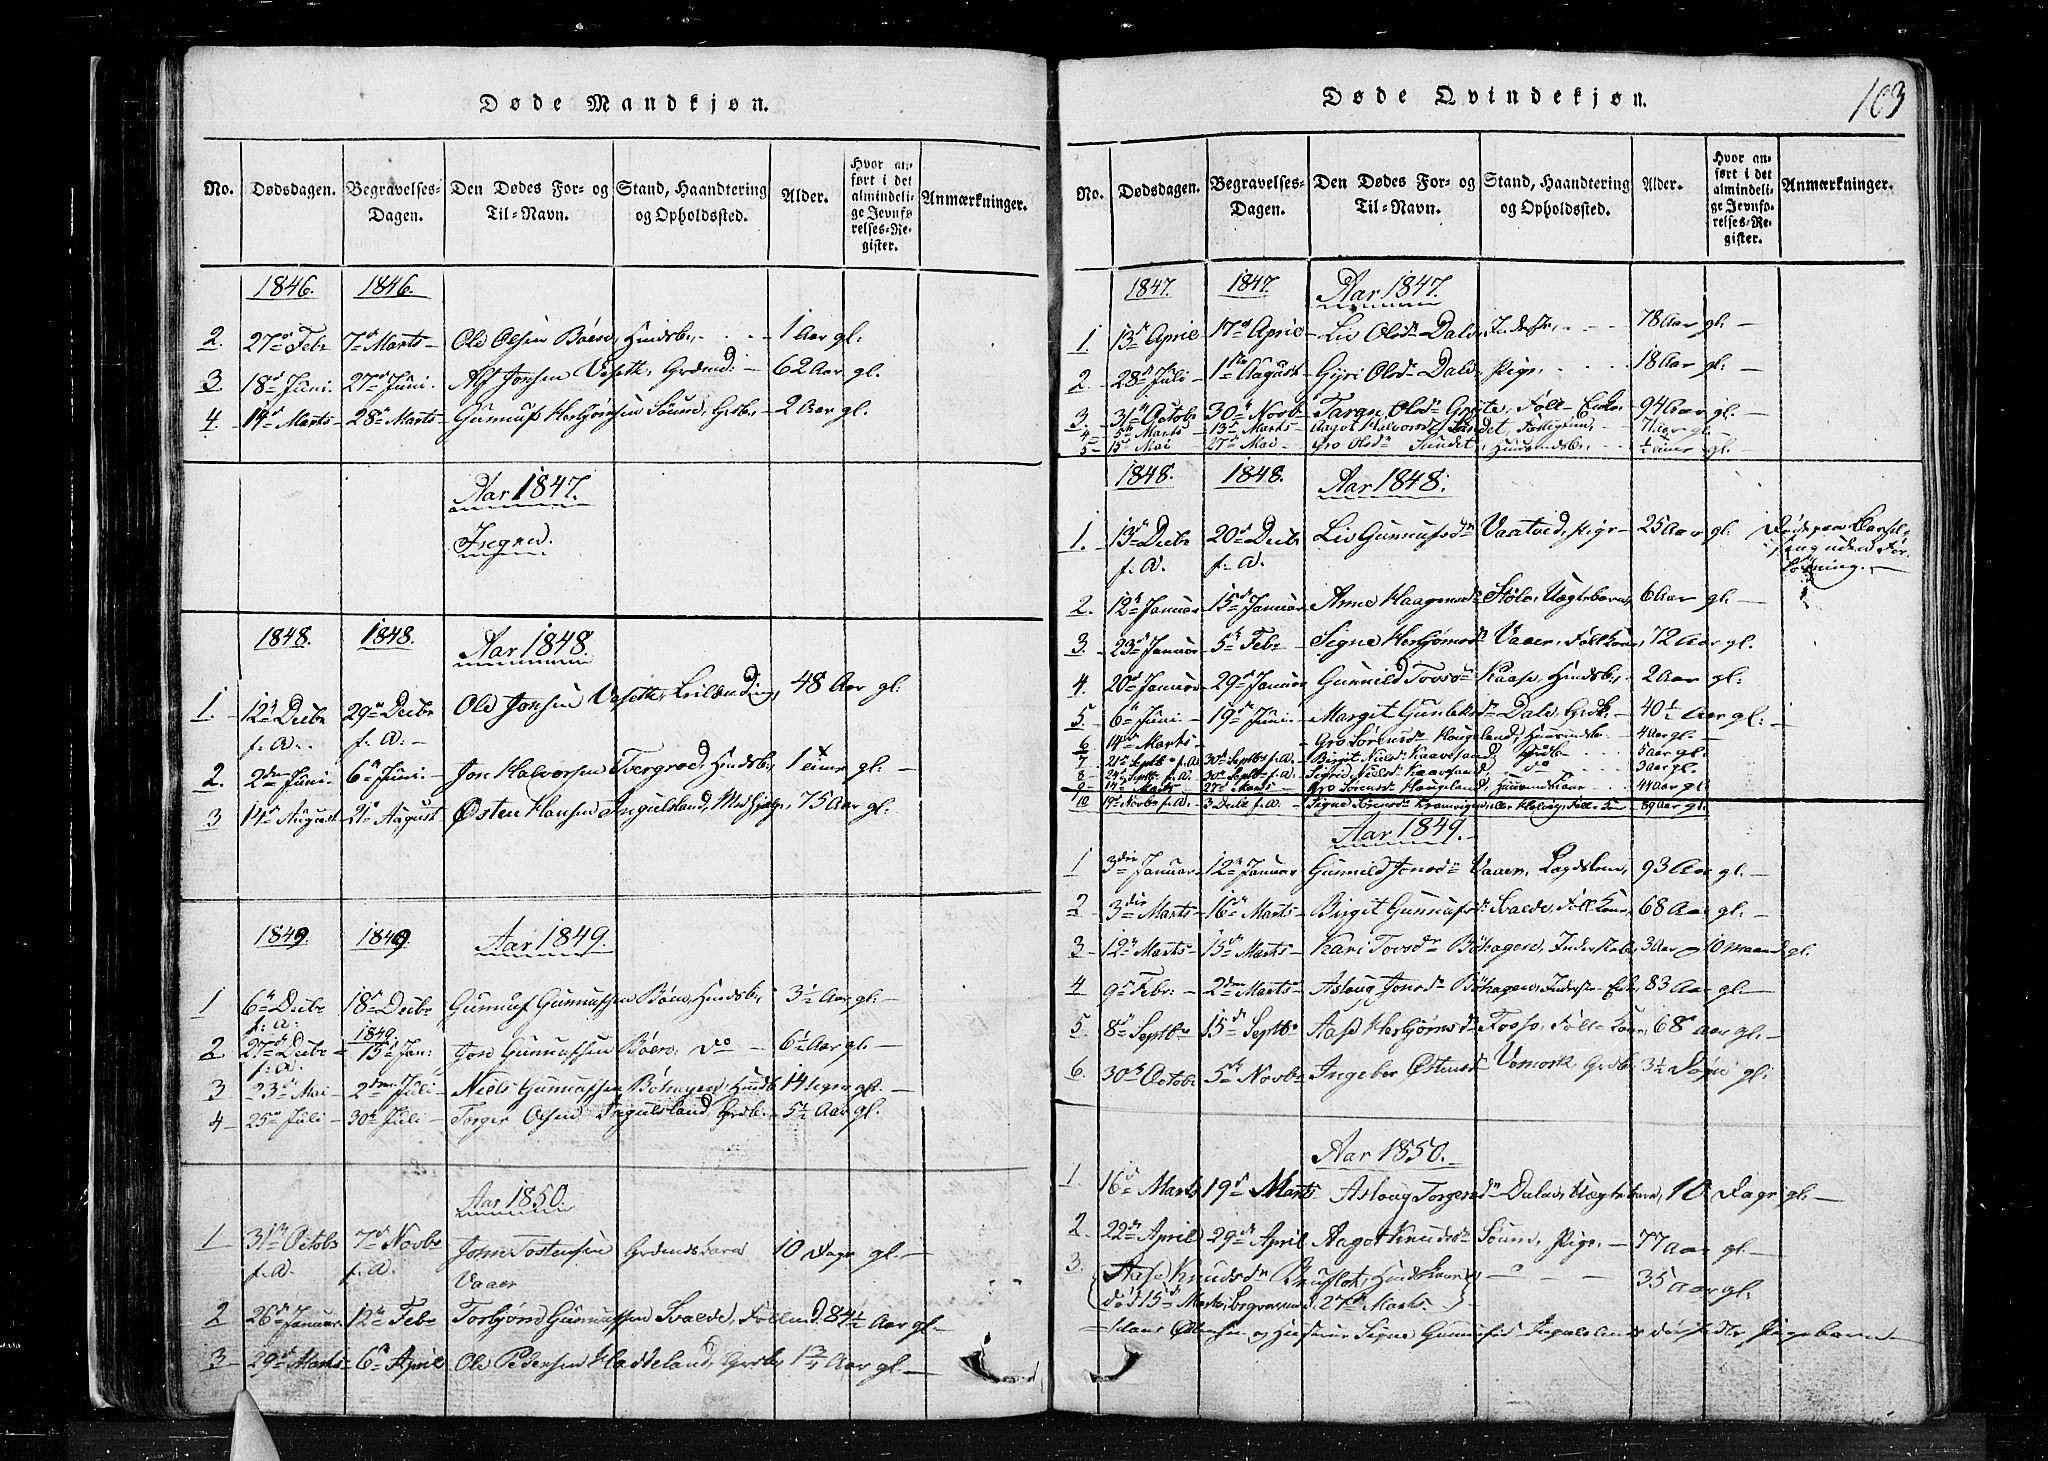 Døde Mandkjøn.
No. Dødsdagen. Begravelses-Dagen. Den Dødes For- og Til-Navn. Stand, Haandtering og Opholdssted. Alder. Hvor anført i det almindelige Jevnførelses-Register. Anmærkninger.
1846. 1846.
2. 27de Febr 7de Marts Ole Olsen Bøen, Huusb., 1 Aar gl.
3. 18de Juni 27de Juni Alf Jonsen Vesetl, Grdmd: 62 Aar gl.
4. 14de Marts 28de Marts Gunnuf Herjønsen Soum, Grdb., 2 Aar gl.
Aar 1847.
Ingen.
1848. 1848. Aar 1848.
1. 12te Decbr f. A. 29de Decbr f. A. Ole Jonsen Vesetl, Leilænding, 48 Aar gl.
2. 2den Juni 6te Juni Jon Halvorsen Tvergrod, Huusb., 1 gl.
3 14de August 21de August Østen Hansen Ingulsland, 75 Aar gl.
1849. 1849. Aar 1849.
1 6te Decbr f. A. 18de Decbr Gunnuf Gunnufsen Bøen, Huusb., 3½ Aar gl.
2 27de Decbr f. A. 1849 15de Jan: Jon Gunnufsen Bøen, do 6½ Aar gl.
3 23de Mai 2den Juli Niels Gunnufsen Bøhagen, Huusb. 14 gl.
4 25de Juli 30te Juli Torger Olsen Ingulsland, Grdb. 5½ Aar gl.
Aar 1850.
1 31te Octobr f. A. 7de Novbr f. A. John Tostensen Vaaer 10 Dage gl.
2 26de Januar 12te Febr Torbjørn Gunnufsen Svalde, 84½ Aar gl.
3 29de Marts 6te April Ole Pedersen Haddeland, Grdb., 1¾ Aar gl.
Døde Qvindekjøn.
103
No. Dødsdagen. Begravelses-Dagen. Den Dødes For- og Til-Navn. Stand, Haandtering og Opholdssted. Alder. Hvor anført i det almindelige Jevnførelses-Register. Anmærkninger.
1847. 1847. Aar 1847.
1. 13de April 17de April Liv Olsdr Dale, Inderste, 78 Aar gl.
2. 28de Juli 1ste August Gyri Olsdr Dale, Pige, 18 Aar gl.
3. 31te Octobr 30te Novb Targn Olsdr Grøte, Føll-Enke, 94 Aar gl.
4 5te Marts 13de Marts Aagot Halvorsdr Sundet, gl.
5 15de Mai 27de Mai Gro Olsdr Sundet, Huusmdsb., gl.
1848. 1848. Aar 1848.
1. 13de Decbr f. A. 20de Decbr f. A. Liv Gunnufsdr Vaatved, Pige 25 Aar gl. Døde paa Barsel-seng uden For-løsning.
2. 12te Januar 15de Januar Anne Haagensdr Støle, Uægtebarn, 6 Aar gl.
3. 23de Januar 5te Febr Signe Herjønsdr Vaaer, Føllkone, 72 Aar gl.
4. 20de Januar 29de Januar Gunnild Tovsdr Kaase, Huusb., 2 Aar gl.
5. 6te Juni 19de Juni Margit Gunleksdr Dale, Grdk. 40½ Aar gl.
6 14de Marts Gro Sørensdr Haugeland, 4 Aar gl.
7 21de Septbr f. A. 30te Septbr f. A. Birgit Nielsdr Kaavesand Grdb 5 Aar gl.
8 24de Septbr f. A. 30te Septbr f. A. Sigrid Nielsdr Kaavesand do 3 Aar gl.
9 14de Marts 27de Marts Gro Sørensdr Haugeland, 44 Aar gl.
10 19de Novbr f. A. 3 Decbr f. A. Signe Torensdr 89 Aar gl.
Aar 1849.
1 3die Januar 12te Januar Gunnild Jonsdr Vaaer, Lagdslem, 93 Aar gl.
2 3die Marts 16de Marts Birgit Gunnufsdr Svalde, Føllkone, 68 Aar gl.
3 12te Marts 15de Marts Kari Tovsdr Bøhagen, 3 Aar og 10 Maaneder gl.
4 9de Febr: 2den Marts Aslaug Jonsdr Bøhagen, Inderste Enke, 83 Aar gl.
5. 8de Septbr 15de Septbr Aase Herjønsdr Fosso, Føll-Kone, 68 Aar gl.
6. 30te Octobr 5te Novbr Ingebor Østensdr Vemork, Grdb. 3½ Døgn gl.
Aar 1850.
1. 16de Marts 19de Marts Aslaug Torgersdr Dale, Uægtebarn, 10 Dage gl.
2. 22de April 29de April Aagot Knudsdr Soum, Pige, 77 Aar gl.
3. Aase Knudsdr Bruflot, Huuskone, 35 Aar gl.
død 15de Marts, begraven d. 27de Marts.
Hans Østensen og Hustrue Signe Gunnufsd. Ingulslands dødfødte Pigebarn